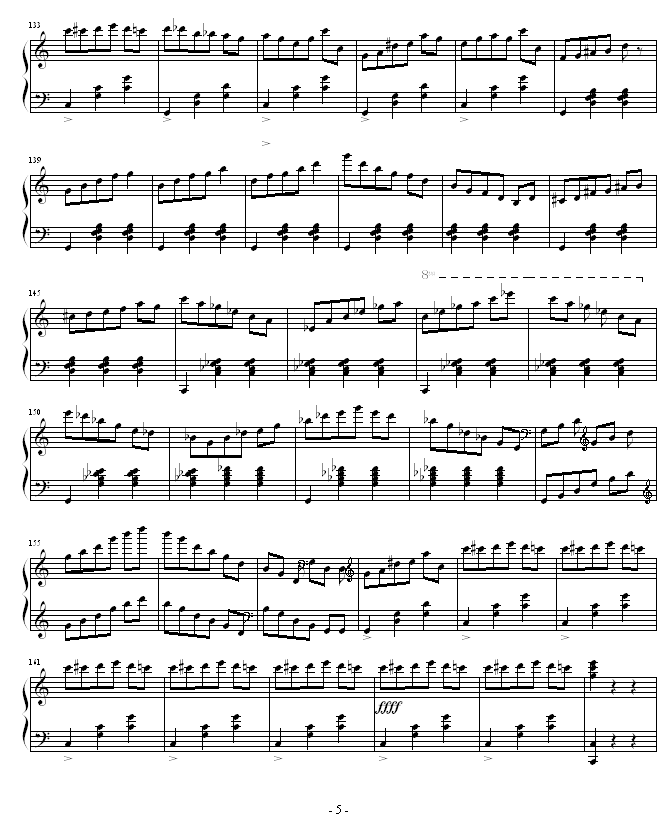 133
139
145
8va
150
155
141
ffff
- 5 -